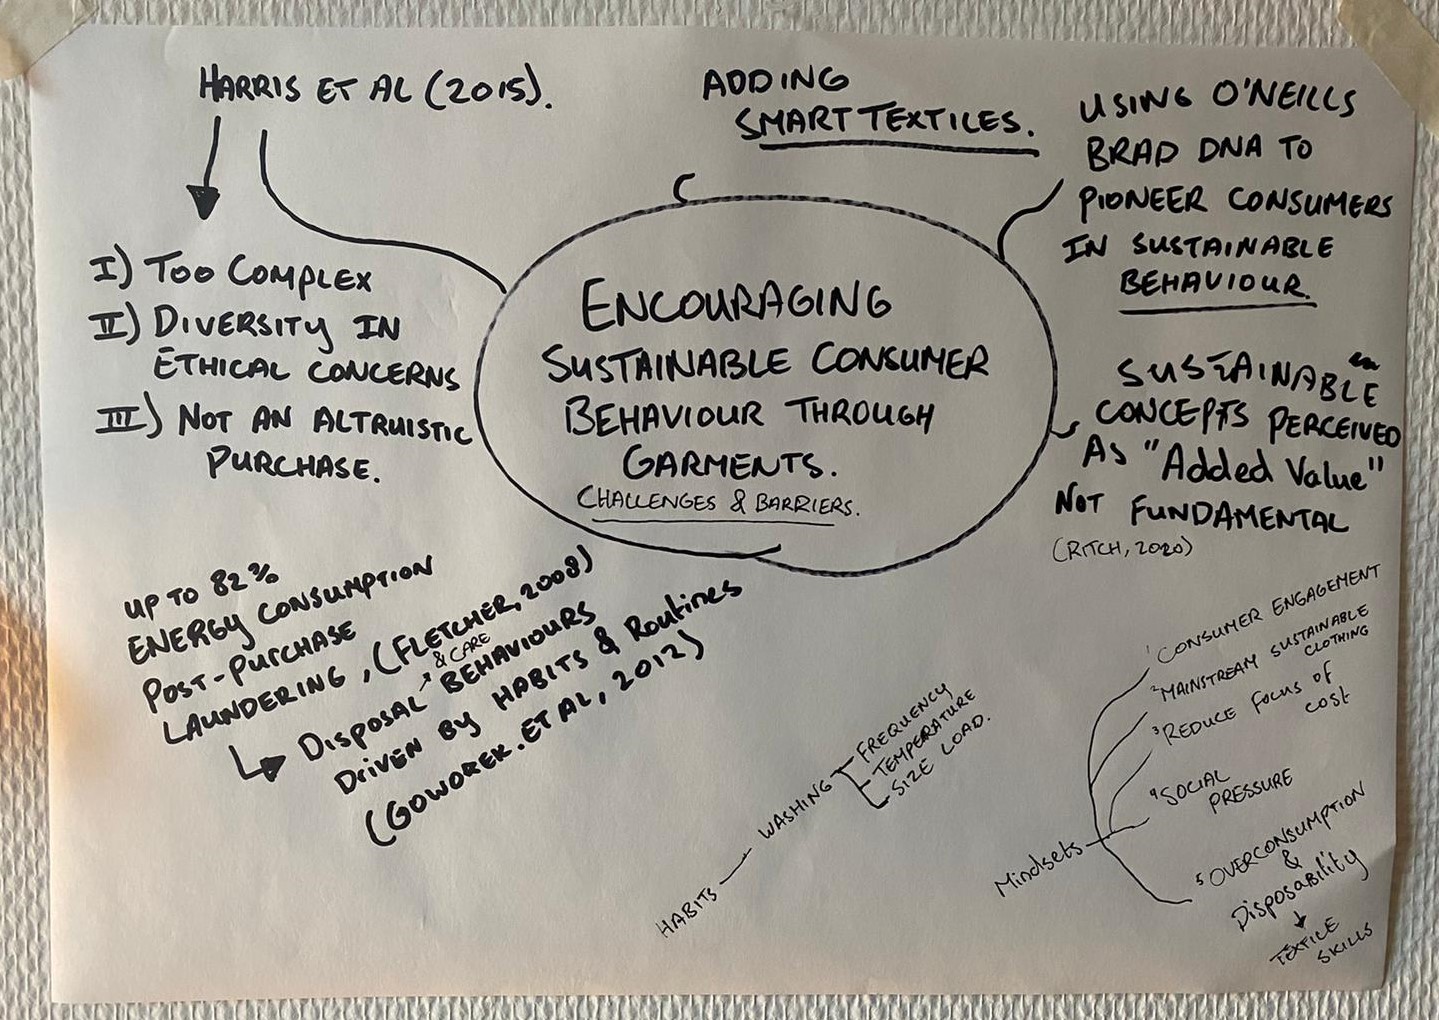 HARRIS ET AL (2015).
I) TOO COMPLEX
II) DIVERSITY IN
ETHICAL CONCERNS
III) NOT AN ALTRUISTIC
PURCHASE.
ADDING
SMART TEXTILES.
USING O'NEILLS
BRAD DNA TO
PIONEER CONSUMERS
IN SUSTAINABLE
BEHAVIOUR.
ENCOURAGING
SUSTAINABLE CONSUMER
BEHAVIOUR THROUGH
GARMENTS.
CHALLENGES & BARRIERS.
SUSTAINABLE
CONCEPTS PERCEIVED
AS "Added Value"
NOT FUNDAMENTAL
(RITCH, 2020)
UP TO 82%
ENERGY CONSUMPTION
POST-PURCHASE
LAUNDERING, (FLETCHER, 2008)
& CARE
DISPOSAL BEHAVIOURS
DRIVEN BY HABITS & Routines
(GOWOREK. ET AL, 2012)
HABITS
WASHING
FREQUENCY
TEMPERATURE
SIZE LOAD.
Mindsets
1 CONSUMER ENGAGEMENT
2 MAINSTREAM SUSTAINABLE
CLOTHING
3 REDUCE FOCUS OF
COST
4 SOCIAL
PRESSURE
5 OVERCONSUMPTION
&
Disposability
TEXTILE
SKILLS